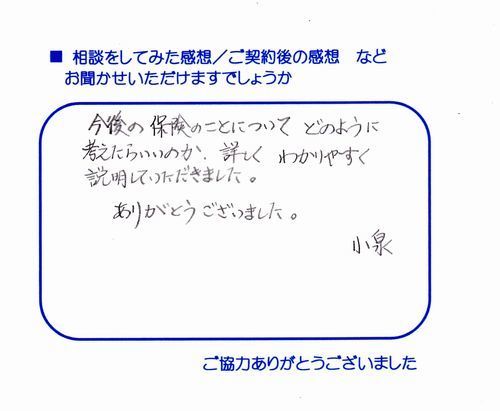 ■ 相談をしてみた感想／ご契約後の感想 など
お聞かせいただけますでしょうか
今後の保険のことについて どのように
考えたらいいのか、詳しく わかりやすく
説明していただきました。
ありがとうございました。
小泉
ご協力ありがとうございました